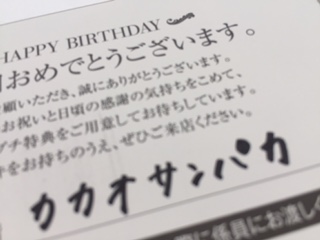 HAPPY BIRTHDAY
おめでとうございます。
顧いただき、誠にありがとうございます。
お祝いと日頃の感謝の気持ちをこめて、
特典をご用意してお待ちしています。
をお持ちのうえ、ぜひご来店ください。
カカオサンパカ
に係員にお渡しく